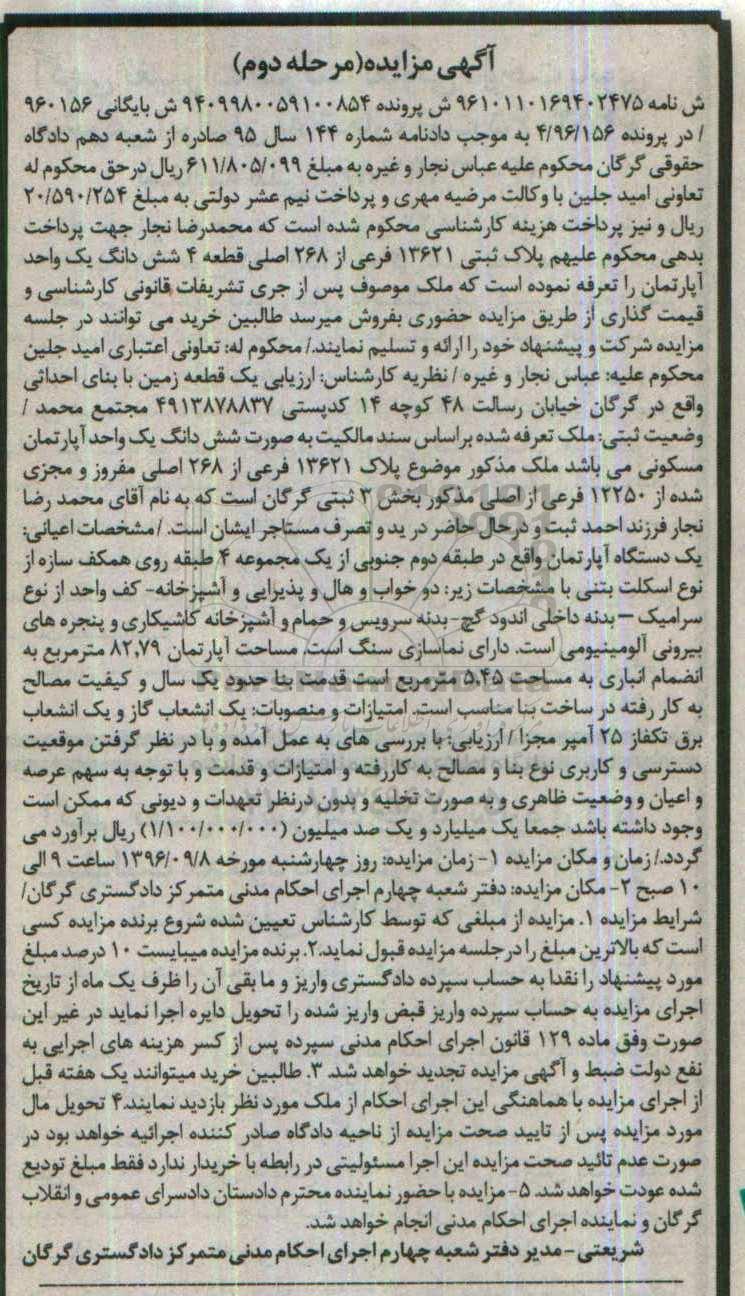 آگهی مزایده(مرحله دوم)
ش نامه ۹۶۱۰۱۱۰۱۶۹۴۰۲۴۷۵ ش پرونده ۹۴۰۹۹۸۰۰۵۹۱۰۰۸۵۴ ش بایگانی ۹۶۰۱۵۶
/ در پرونده ۴/۹۶/۱۵۶ به موجب دادنامه شماره ۱۴۴ سال ۹۵ صادره از شعبه دهم دادگاه
حقوقی گرگان محکوم علیه عباس نجار و غیره به مبلغ ۶۱۱/۸۰۵/۰۹۹ ریال درحق محکوم له
تعاونی امید جلین با وکالت مرضیه مهری و پرداخت نیم عشر دولتی به مبلغ ۲۰/۵۹۰/۲۵۴
ریال و نیز پرداخت هزینه کارشناسی محکوم شده است که محمدرضا نجار جهت پرداخت
بدهی محکوم علیهم پلاک ثبتی ۱۳۶۲۱ فرعی از ۲۶۸ اصلی قطعه ۴ شش دانگ یک واحد
آپارتمان را تعرفه نموده است که ملک موصوف پس از جری تشریفات قانونی کارشناسی و
قیمت گذاری از طریق مزایده حضوری بفروش میرسد طالبین خرید می توانند در جلسه
مزایده شرکت و پیشنهاد خود را ارائه و تسلیم نمایند./ محکوم له: تعاونی اعتباری امید جلین
محکوم علیه: عباس نجار و غیره / نظریه کارشناس: ارزیابی یک قطعه زمین با بنای احداثی
واقع در گرگان خیابان رسالت ۴۸ کوچه ۱۴ کدپستی ۴۹۱۳۸۷۸۸۳۷ مجتمع محمد /
وضعیت ثبتی: ملک تعرفه شده براساس سند مالکیت به صورت شش دانگ یک واحد آپارتمان
مسکونی می باشد ملک مذکور موضوع پلاک ۱۳۶۲۱ فرعی از ۲۶۸ اصلی مفروز و مجزی
شده از ۱۲۲۵۰ فرعی از اصلی مذکور بخش ۳ ثبتی گرگان است که به نام آقای محمد رضا
نجار فرزند احمد ثبت و درحال حاضر در ید و تصرف مستاجر ایشان است. /مشخصات اعیانی:
یک دستگاه آپارتمان واقع در طبقه دوم جنوبی از یک مجموعه ۴ طبقه روی همکف سازه از
نوع اسکلت بتنی با مشخصات زیر: دو خواب و هال و پذیرایی و آشپزخانه- کف واحد از نوع
سرامیک – بدنه داخلی اندود گچ-بدنه سرویس و حمام و آشپزخانه کاشیکاری و پنجره های
بیرونی آلومینیومی است. دارای نماسازی سنگ است. مساحت آپارتمان ۸۲,۷۹ مترمربع به
انضمام انباری به مساحت ۵,۴۵ مترمربع است قدمت بنا حدود یک سال و کیفیت مصالح
به کار رفته در ساخت بنا مناسب است. امتیازات و منصوبات: یک انشعاب گاز و یک انشعاب
برق تکفاز ۲۵ آمپر مجزا / ارزیابی: با بررسی های به عمل آمده و با در نظر گرفتن موقعیت
دسترسی و کاربری نوع بنا و مصالح به کاررفته و امتیازات و قدمت و با توجه به سهم عرصه
و اعیان و وضعیت ظاهری و به صورت تخلیه و بدون درنظر تعهدات و دیونی که ممکن است
وجود داشته باشد جمعا یک میلیارد و یک صد میلیون (۱/۱۰۰/۰۰۰/۰۰۰) ریال برآورد می
گردد./ زمان و مکان مزایده ۱- زمان مزایده: روز چهارشنبه مورخه ۱۳۹۶/۰۹/۸ ساعت ۹ الی
۱۰ صبح ۲- مکان مزایده: دفتر شعبه چهارم اجرای احکام مدنی متمرکز دادگستری گرگان/
شرایط مزایده ۱. مزایده از مبلغی که توسط کارشناس تعیین شده شروع برنده مزایده کسی
است که بالاترین مبلغ را درجلسه مزایده قبول نماید.۲. برنده مزایده میبایست ۱۰ درصد مبلغ
مورد پیشنهاد را نقدا به حساب سپرده دادگستری واریز و ما بقی آن را ظرف یک ماه از تاریخ
اجرای مزایده به حساب سپرده واریز قبض واریز شده را تحویل دایره اجرا نماید در غیر این
صورت وفق ماده ۱۲۹ قانون اجرای احکام مدنی سپرده پس از کسر هزینه های اجرایی به
نفع دولت ضبط و آگهی مزایده تجدید خواهد شد. ۳. طالبین خرید میتوانند یک هفته قبل
از اجرای مزایده با هماهنگی این اجرای احکام از ملک مورد نظر بازدید نمایند.۴ تحویل مال
مورد مزایده پس از تایید صحت مزایده از ناحیه دادگاه صادر کننده اجرائیه خواهد بود در
صورت عدم تائید صحت مزایده این اجرا مسئولیتی در رابطه با خریدار ندارد فقط مبلغ تودیع
شده عودت خواهد شد. ۵- مزایده با حضور نماینده محترم دادستان دادسرای عمومی و انقلاب
گرگان و نماینده اجرای احکام مدنی انجام خواهد شد.
شریعتی - مدیر دفتر شعبه چهارم اجرای احکام مدنی متمرکز دادگستری گرگان